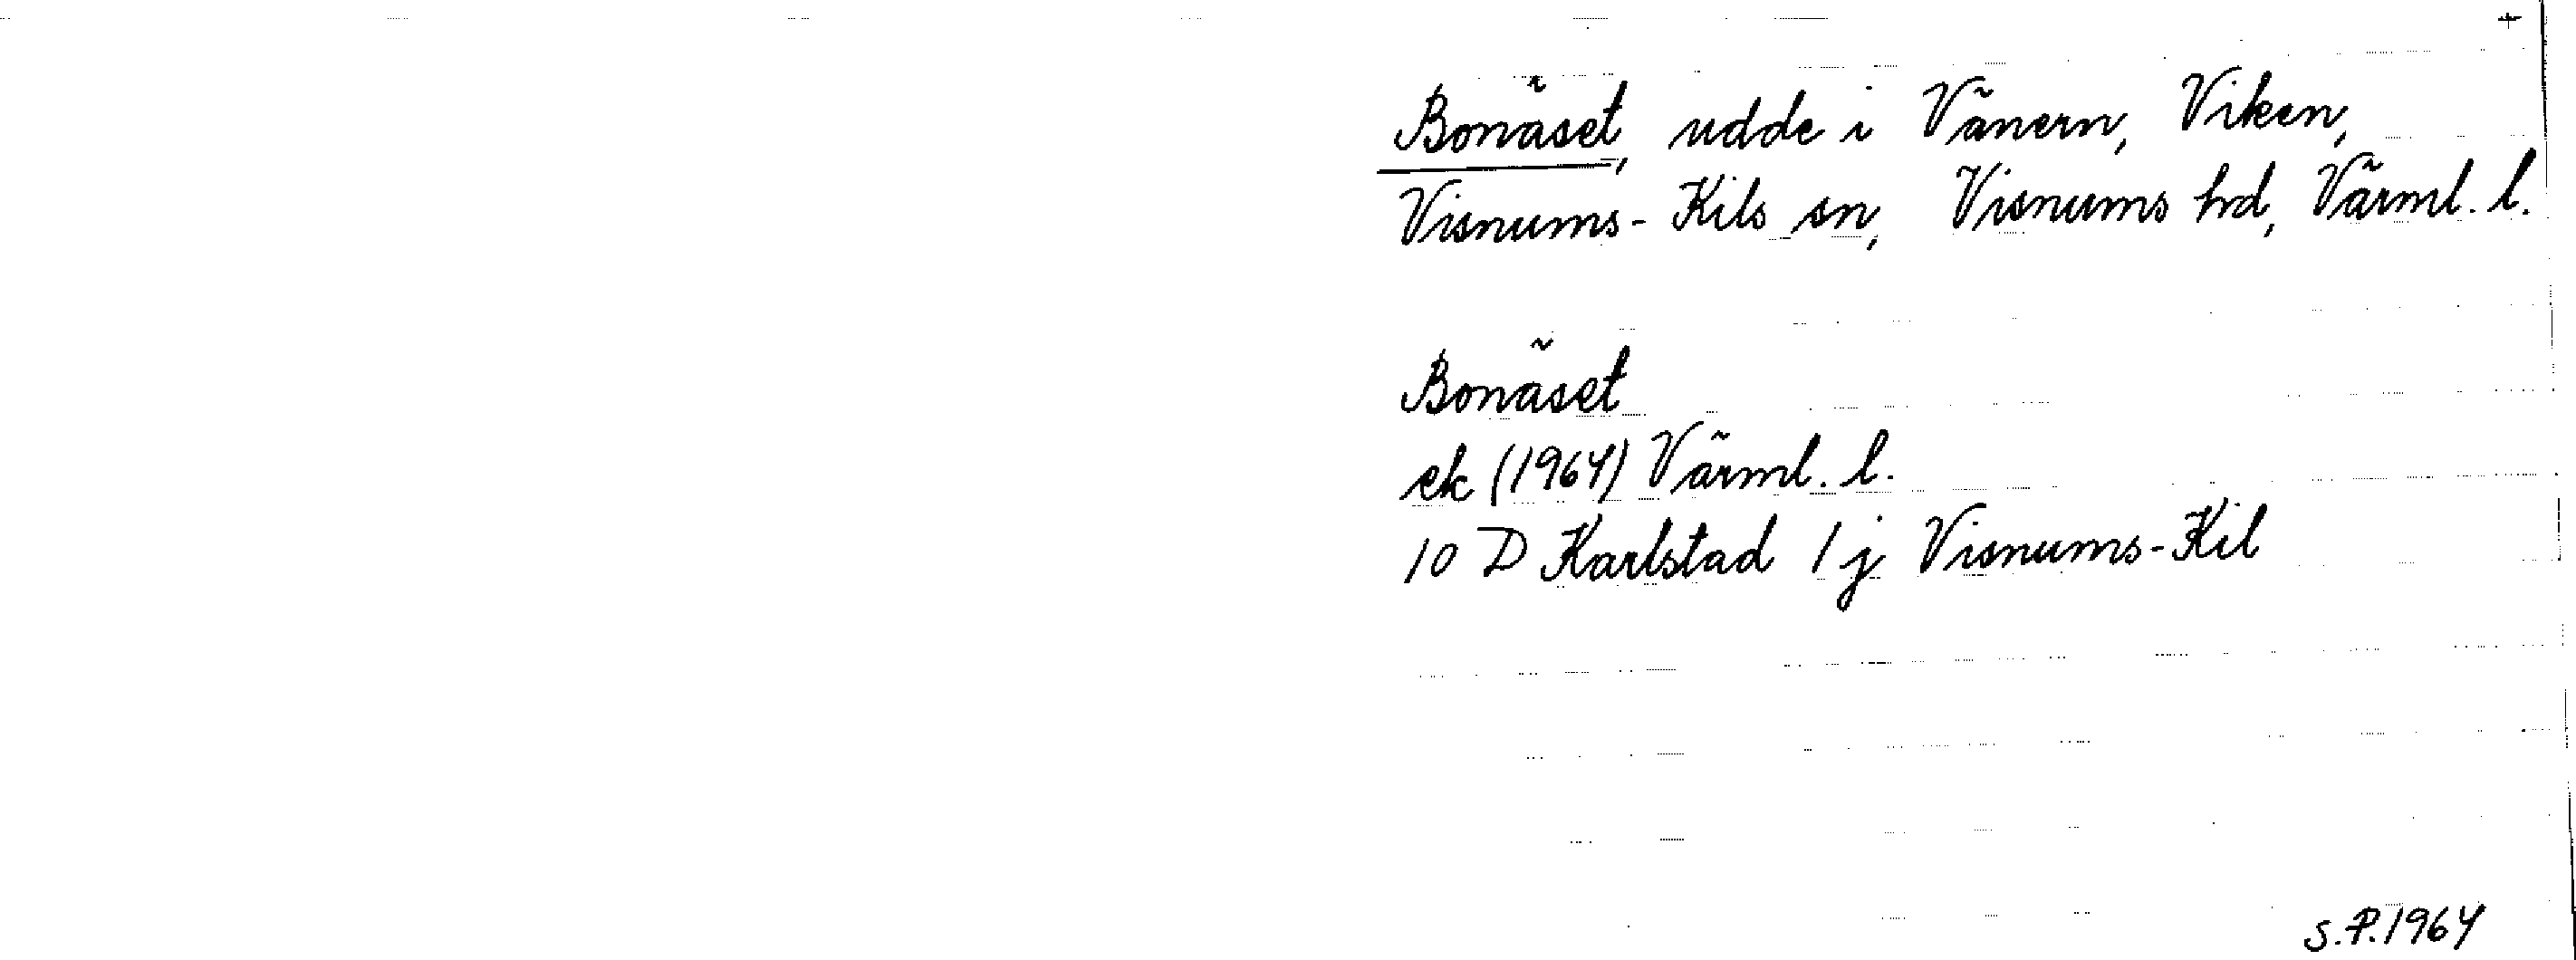 Bonäset, udde i Vänern, Viken,
Visnums-Kils sn, Visnums hd, Värml. l.
Bonäset
ek (1964) Värml. l.
10 D Karlstad 1 j Visnums-Kil
S.P. 1964